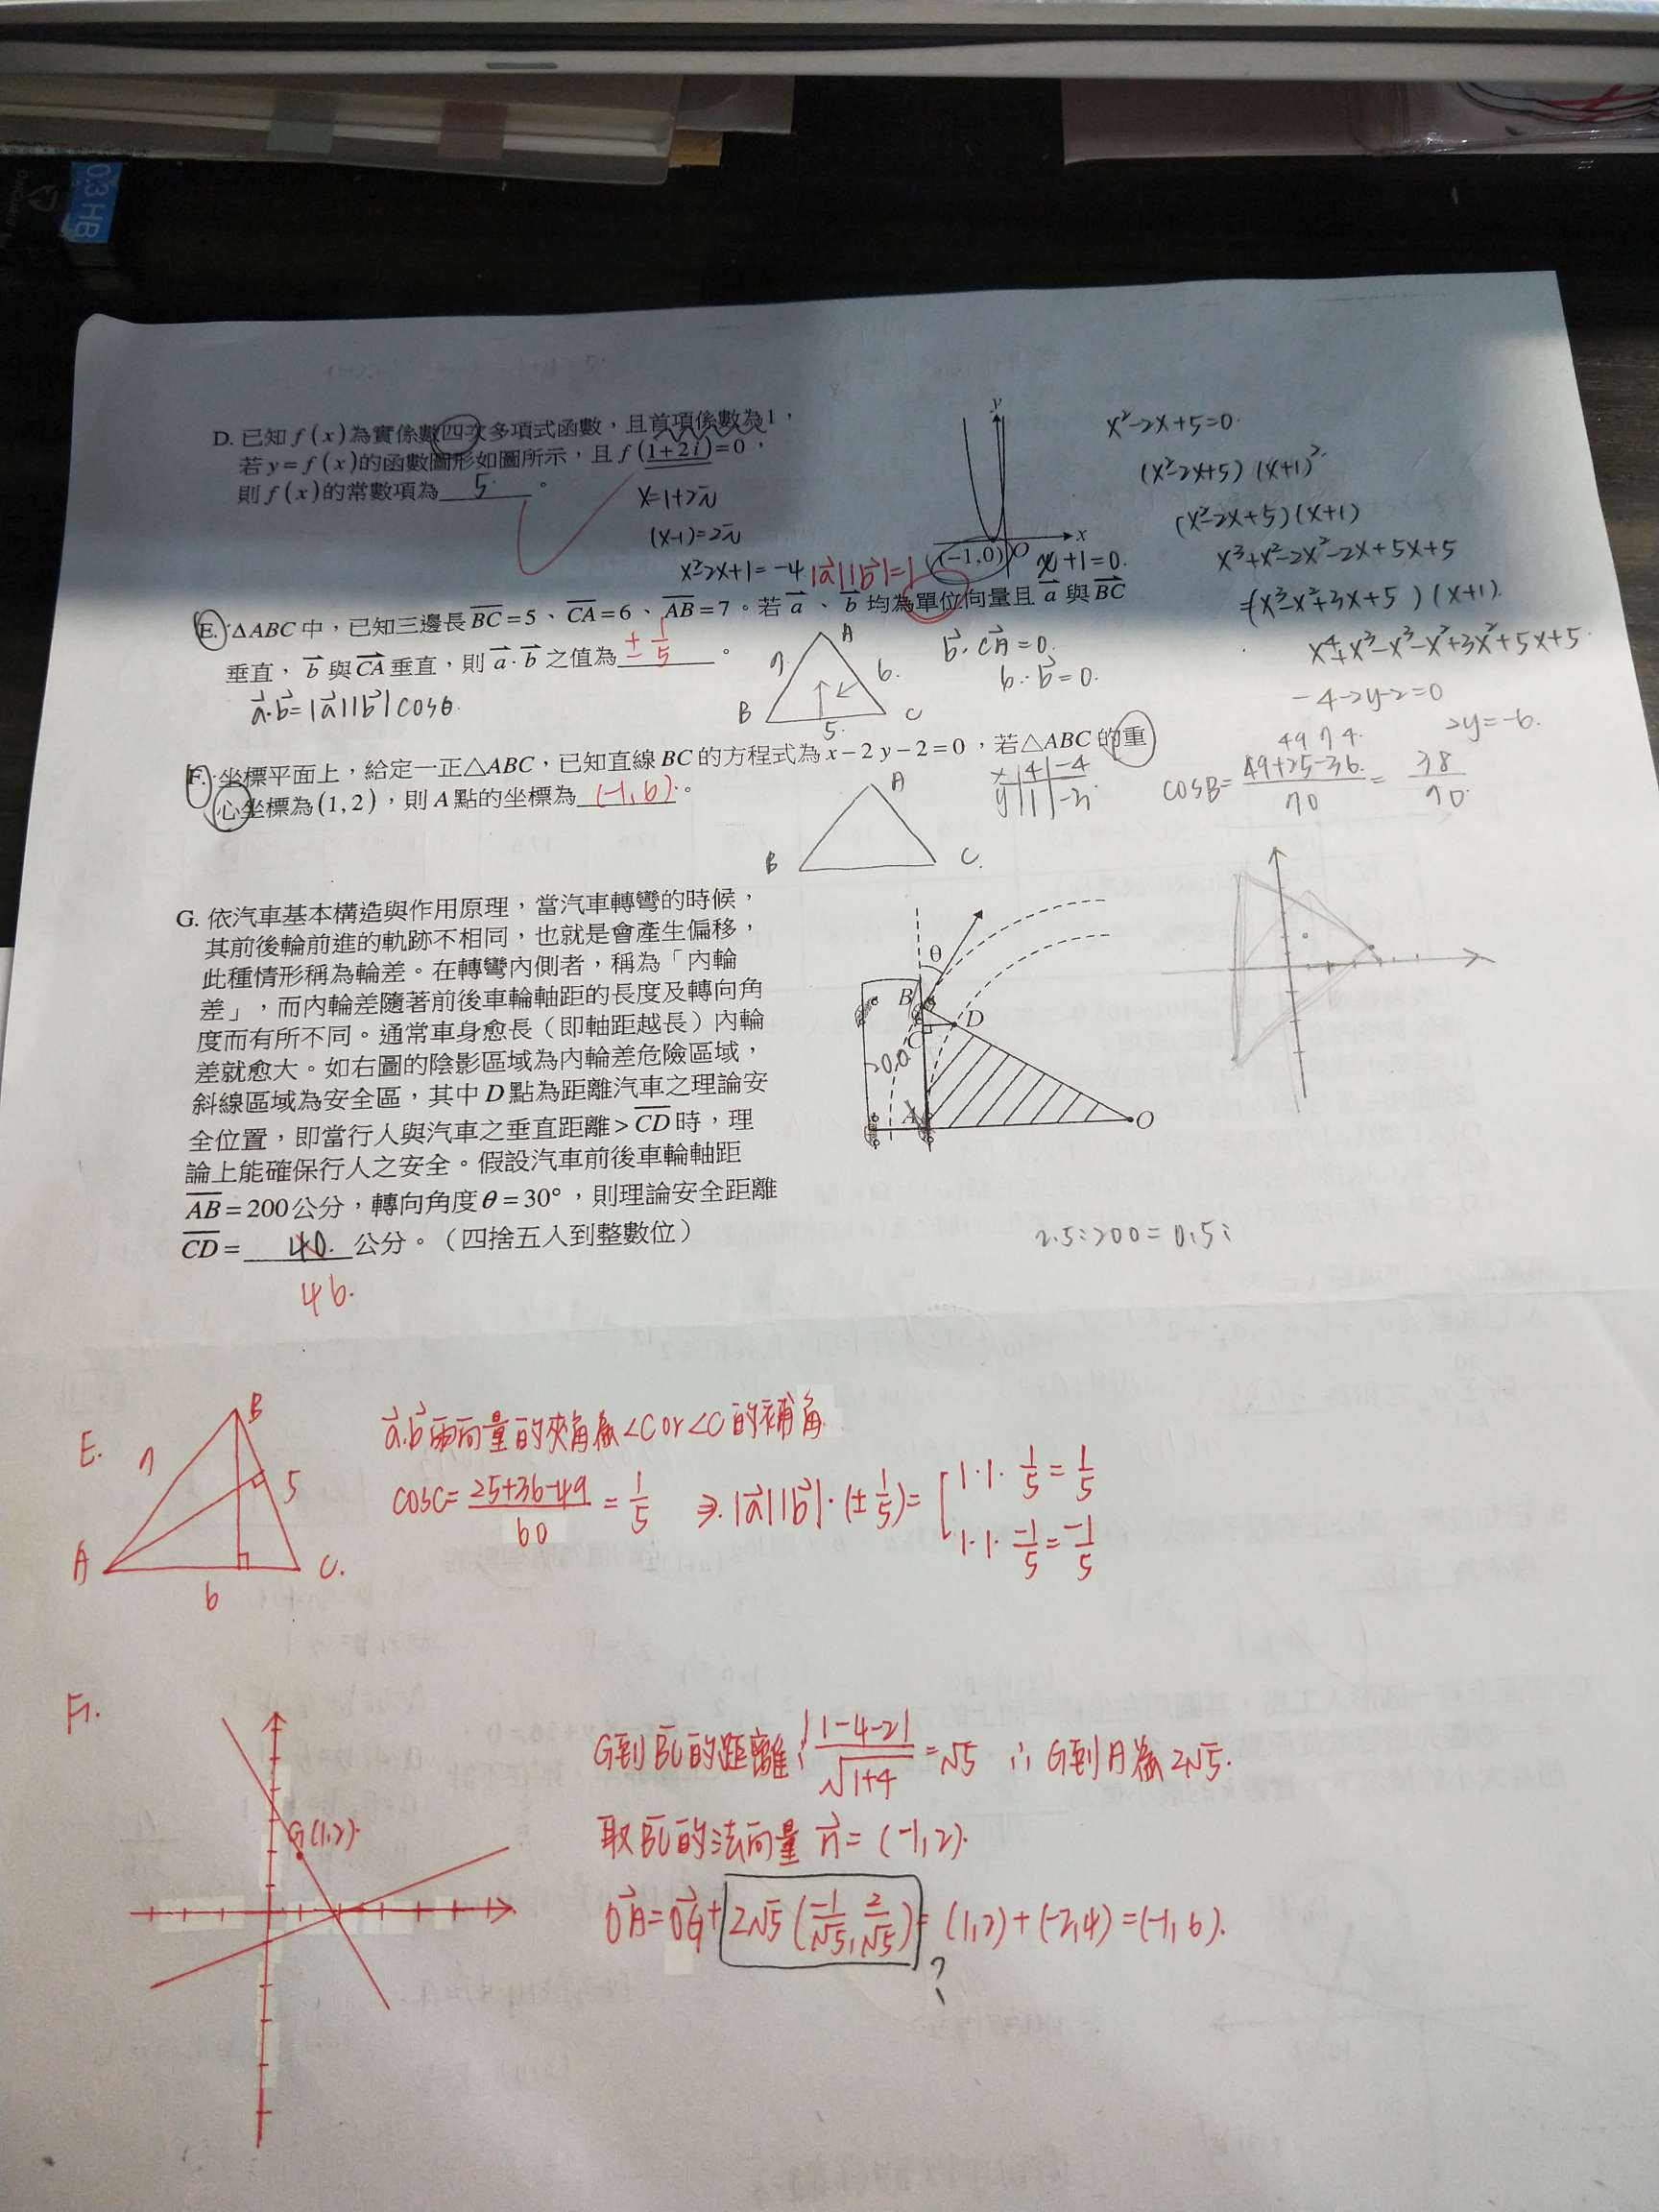 0.3 HB
D. 已知 f(x) 為實係數四次多項式函數，且首項係數為1，
若 y=f(x) 的函數圖形如圖所示，且 f(1+2i)=0，
則 f(x) 的常數項為 5 。
x=1+2i
(x-1)=2i
x²-2x+1=-4
y
x
(-1,0)
O
x+1=0.
x²-2x+5=0.
(x²-2x+5)(x+1)²
(x²-2x+5)(x+1)
x³+x²-2x²-2x+5x+5
=(x³-x²+3x+5)(x+1)
x⁴+x³-x³-x²+3x²+5x+5
|a⃗||b⃗|=1
E. △ABC 中，已知三邊長 BC=5、CA=6、AB=7。若 a⃗、b⃗ 均為單位向量且 a⃗ 與 BC⃗
垂直，b⃗ 與 CA⃗ 垂直，則 a⃗·b⃗ 之值為 ±1/5 。
a⃗·b⃗=|a⃗||b⃗|cosθ.
A
7.
6.
B
C
5.
b⃗·CA⃗=0.
-4-2y-2=0
2y=-6.
F. 坐標平面上，給定一正△ABC，已知直線 BC 的方程式為 x-2y-2=0，若△ABC 的重
心坐標為(1,2)，則 A 點的坐標為 (-1,6). 。
A
B
C.
x 4 -4
y 1 -3
49 74.
cosB=(49+25-36)/70=38/70
G. 依汽車基本構造與作用原理，當汽車轉彎的時候，
其前後輪前進的軌跡不相同，也就是會產生偏移，
此種情形稱為輪差。在轉彎內側者，稱為「內輪
差」，而內輪差隨著前後車輪軸距的長度及轉向角
度而有所不同。通常車身愈長（即軸距越長）內輪
差就愈大。如右圖的陰影區域為內輪差危險區域，
斜線區域為安全區，其中 D 點為距離汽車之理論安
全位置，即當行人與汽車之垂直距離>CD時，理
論上能確保行人之安全。假設汽車前後車輪軸距
AB=200公分，轉向角度θ=30°，則理論安全距離
CD= 40. 公分。（四捨五入到整數位）
46.
θ
B
C
D
200
A
O
2.5:200=0.5:
E.
B
7
5
A
6
C.
a⃗.b⃗ 兩向量的夾角為∠C or ∠C的補角.
cosC=(25+36-49)/60=1/5 ⇒ |a⃗||b⃗|·(±1/5)=
1·1·1/5=1/5
1·1·-1/5=-1/5
F.
G(1,2).
G到BC的距離: |1-4-2|/√(1+4)=√5 ∴ G到A為2√5.
取BC的法向量 n⃗=(-1,2).
OA⃗=OG⃗+2√5(-1/√5, 2/√5)=(1,2)+(-2,4)=(-1,6).
?